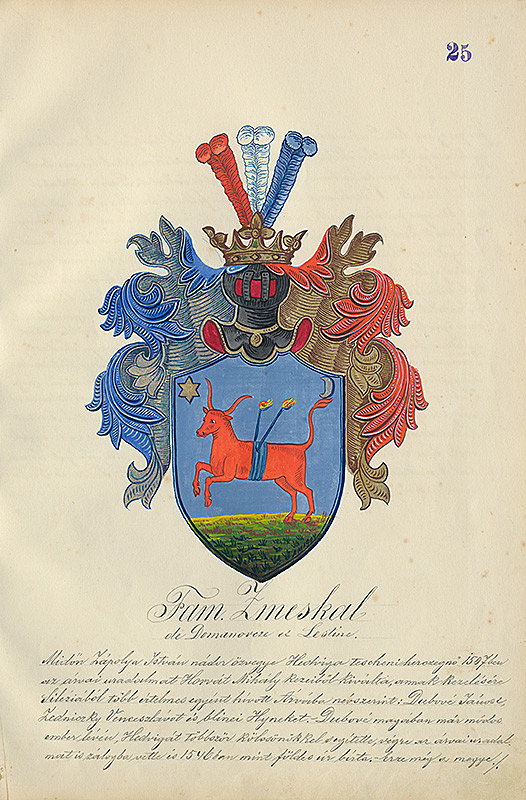 25
Fam. Zmeskal
de Domanovcze et Lestine.
Midőn Zápolya István nádor özvegye Hedviga tescheni herczegnő 1507 ben
az árvai uradalmat Horvát Mihály kezeiből kiváltá, annak kezelésére
Siléziából több értelmes egyént hívott Árvába névszerint: Dubove Jánost,
Zedniczky Venceszlávot és blinei Hyneket. Dubove magában már módos
ember lévén, Hedvigát többször kölcsönökkel segítette, végre az árvai uradal
mat is zálogba vette és 1546 ban mint földes úr bírta; - érze még a megye